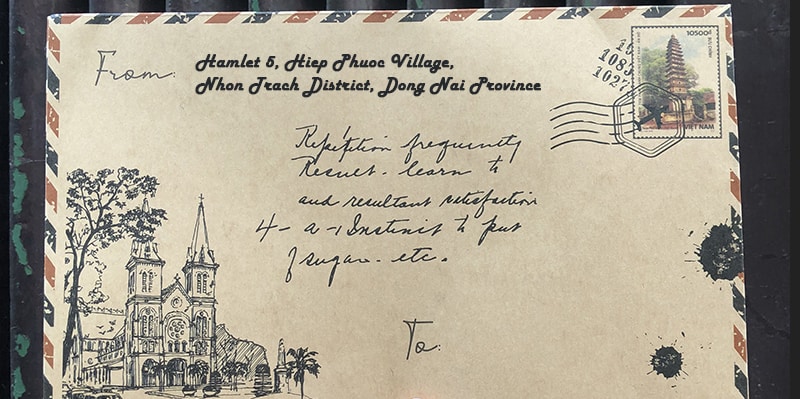 From:
Hamlet 5, Hiep Phuoc Village,
Nhon Trach District, Dong Nai Province
10500đ
BƯU CHÍNH
VIỆT NAM
Repetition frequently
Result - learn to
and resultant satisfaction
4 - a - Instinct to put
sugar - etc.
To: